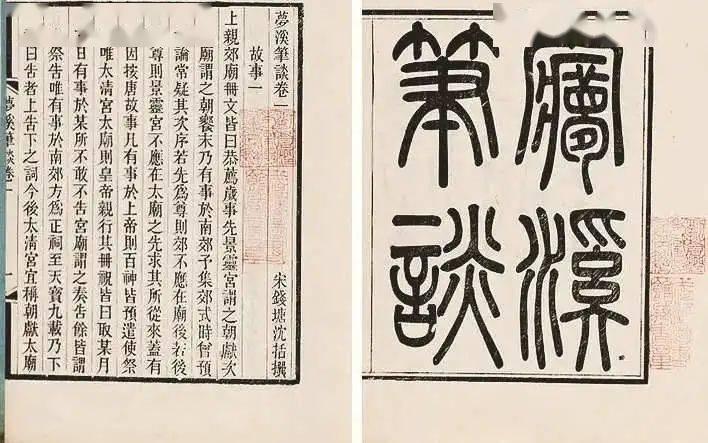 夢溪
筆談
夢溪筆談卷一
宋錢塘沈括撰
故事一
上親郊廟冊文皆曰恭薦歲事先景靈宮謂之朝獻次
廟謂之朝饗末乃有事於南郊予集郊式時曾預
論常疑其次序若先爲尊則郊不應在廟後若後
尊則景靈宮不應在太廟之先求其所從來蓋有
因按唐故事凡有事於上帝則百神皆預遣使祭
唯太清宮太廟則皇帝親行其冊祝皆曰取某月
日有事於某所不敢不告宮廟謂之奏告餘皆謂
祭告唯有事於南郊方爲正祠至天寶九載乃下
曰告者上告下之詞今後太清宮宜稱朝獻太廟
夢溪筆談卷一
一